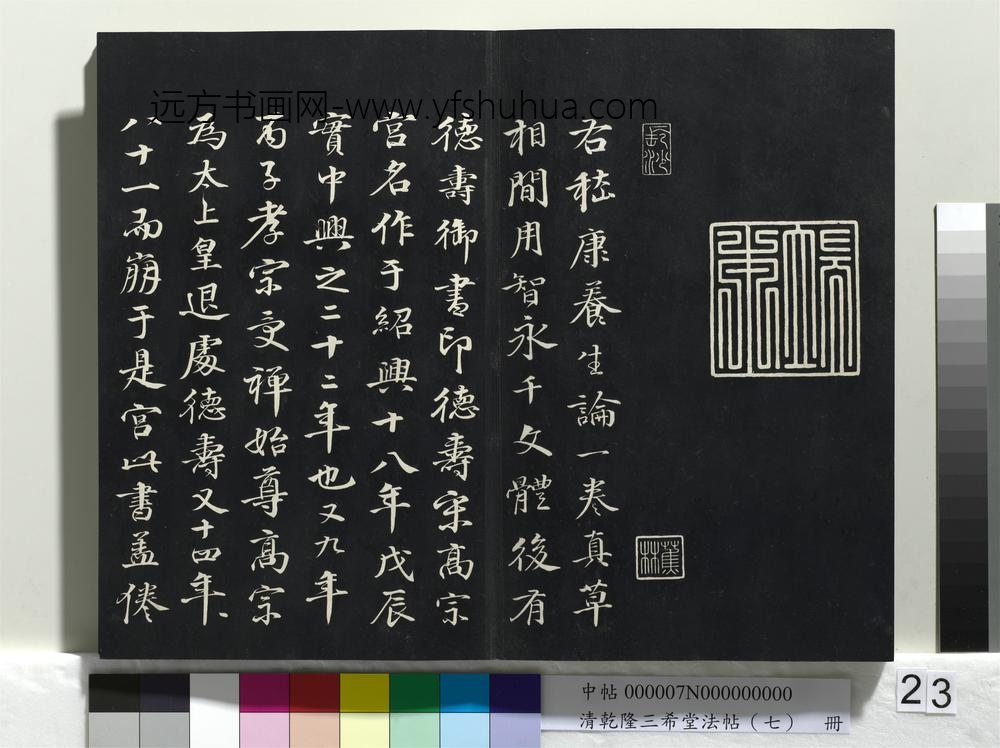 远方书画网-www.yfshuhua.com
長沙
蕉林
右嵇康養生論一卷真草
相間用智永千文體後有
德壽御書印德壽宋高宗
宮名作于紹興十八年戊辰
實中興之二十二年也又九年
丙子孝宗受禪始尊高宗
為太上皇退處德壽又十四年
八十一而崩于是宮此書蓋倦
中帖 000007N000000000
清乾隆三希堂法帖（七） 冊
23